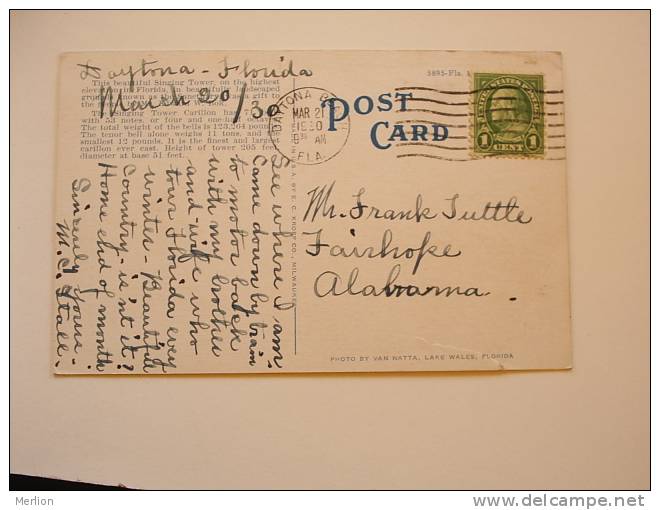 Daytona - Florida
March 20/30
This beautiful Singing Tower, on the highest
elevation in Florida, is beautifully landscaped
the
Singing Tower Carillon has
with 53 notes, or four and one-half octaves.
The total weight of the bells is 123,264 pounds.
The tenor bell alone weighs 11 tons, and the
smallest 12 pounds. It is the finest and largest
carillon ever cast. Height of tower 205 feet,
diameter at base 51 feet.
See where I am-
Came down by train
to motor back
with my brother
and-wife who
tour Florida every
winter - Beautiful
Country - is'nt it?
Home end of month
Sincerely yours -
M. C. Stall.
E. C. KROPP CO., MILWAUKEE
5895-Fla.
POST
CARD
DAYTONA
MAR 21
1930
AM
FLA.
UNITED STATES POSTAGE
1 1
CENT
Mr. Frank Tuttle
Fairhope
Alabama.
PHOTO BY VAN NATTA, LAKE WALES, FLORIDA
Merlion
delcampe.net